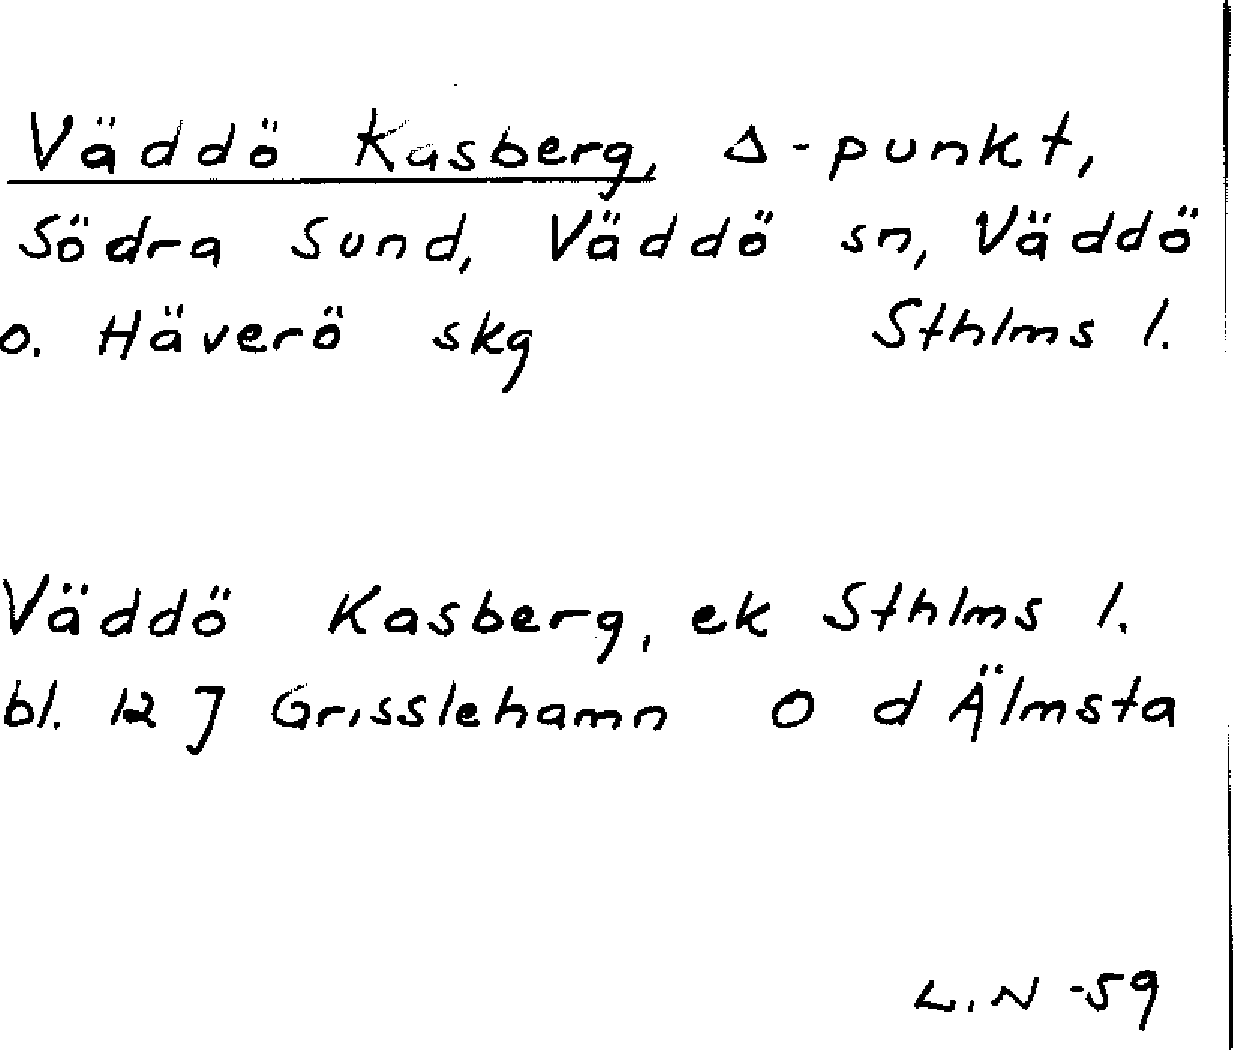 Väddö Kasberg, Δ-punkt,
Södra Sund, Väddö sn, Väddö
o. Häverö skg Sthlms l.
Väddö Kasberg, ek Sthlms l.
bl. 12 J Grisslehamn O d Älmsta
L.N -59